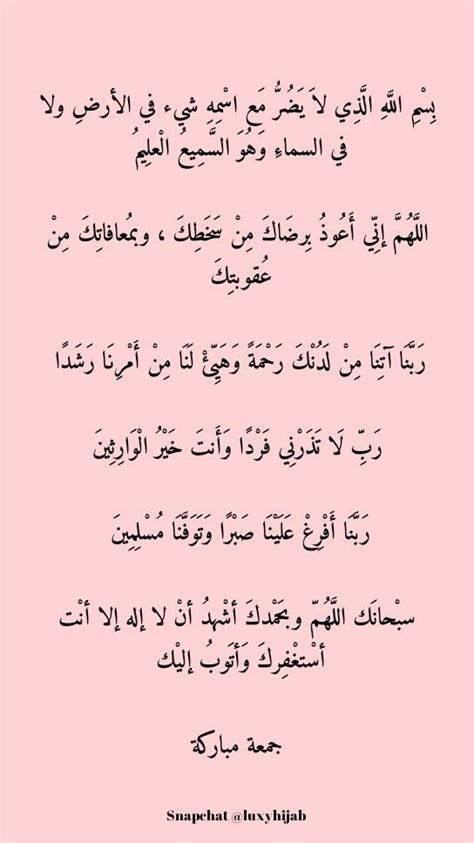 بِسْمِ اللَّهِ الَّذِي لاَ يَضُرُّ مَع اسْمِهِ شيء في الأرضِ ولا
في السماءِ وَهُوَ السَّمِيعُ الْعلِيمُ
اللَّهُمَّ إنِّي أَعُوذُ بِرضَاكَ مِنْ سَخَطِكَ ، وبمُعافاتِكَ مِنْ
عُقوبتِكَ
رَبَّنَا آتِنَا مِنْ لَدُنْكَ رَحْمَةً وَهَيِّئْ لَنَا مِنْ أَمْرِنَا رَشَدًا
رَبِّ لَا تَذَرْنِي فَرْدًا وَأَنتَ خَيْرُ الْوَارِثِينَ
رَبَّنَا أَفْرِغْ عَلَيْنَا صَبْرًا وَتَوَفَّنَا مُسْلِمِينَ
سبْحانَك اللَّهُمّ وبحَمْدكَ أشْهدُ أنْ لا إله إلا أنْت
أسْتغْفِركَ وَأتَوبُ إليْك
جمعة مباركة
Snapchat @luxyhijab